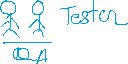 Tester
QA